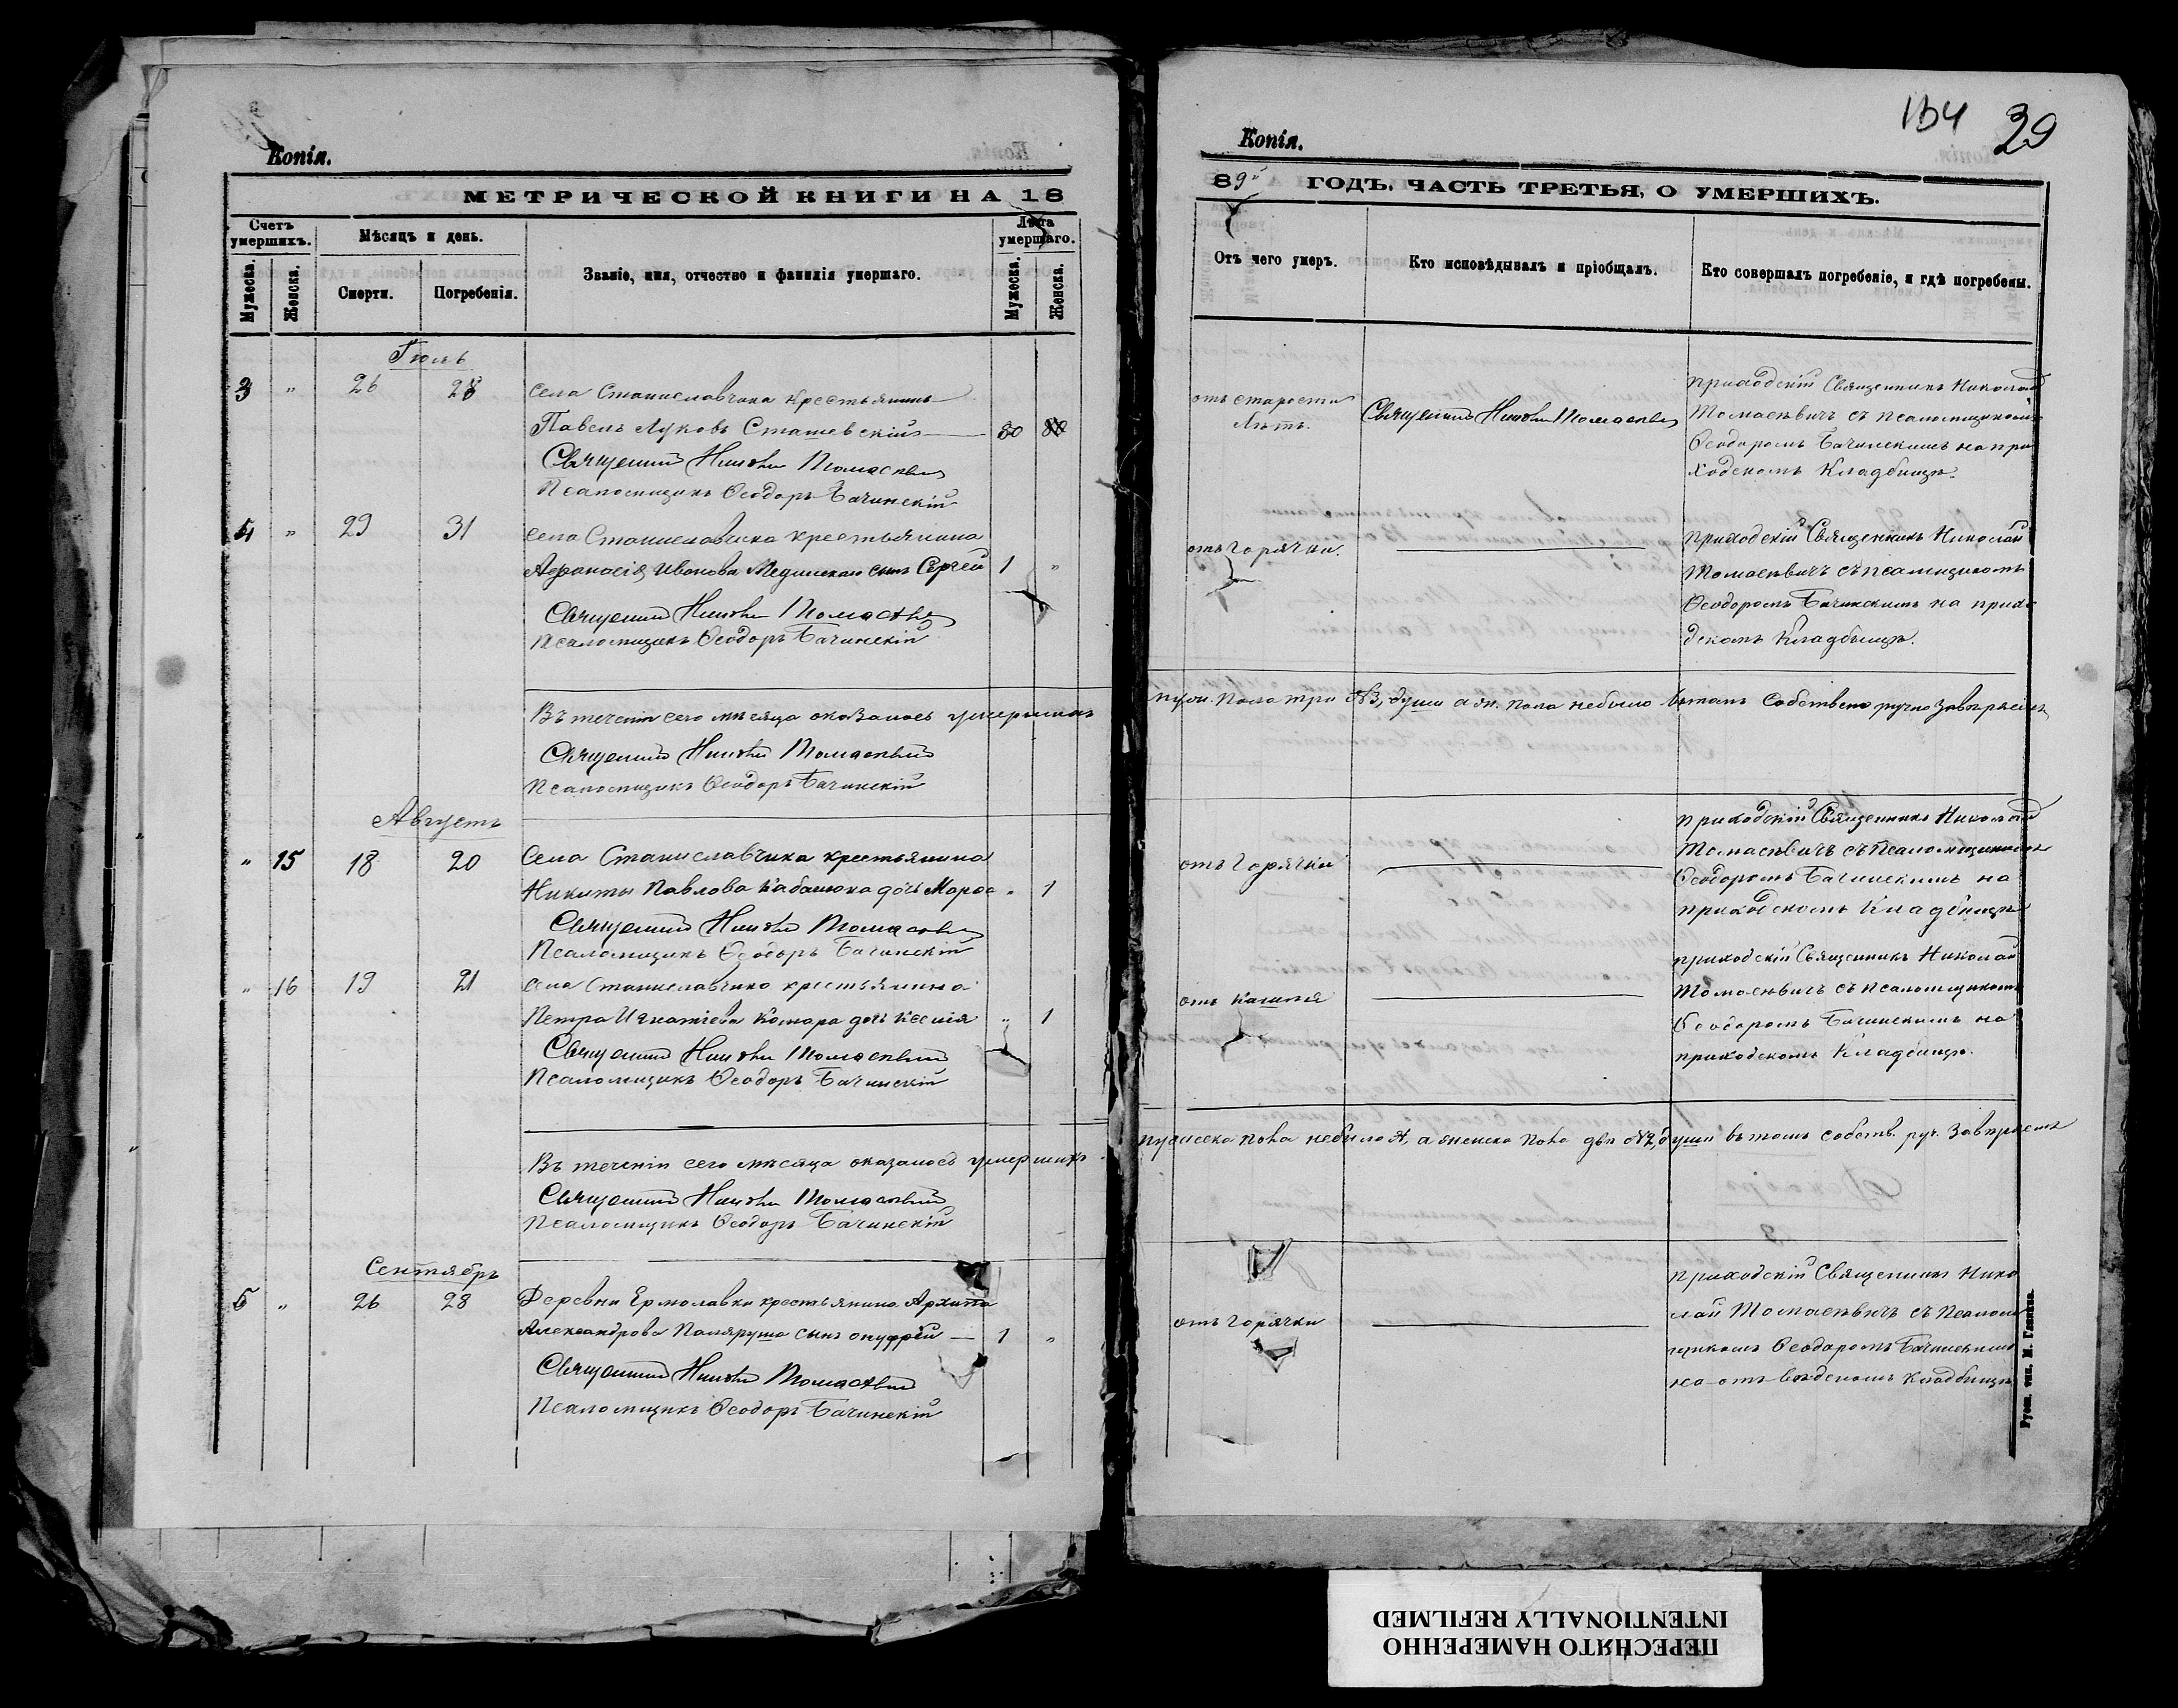 Копія.
МЕТРИЧЕСКОЙ КНИГИ НА 18
Счетъ умершихъ.
Мужеска.
Женска.
Мѣсяцъ и день.
Смерти.
Погребенія.
Званіе, имя, отчество и фамилія умершаго.
Лѣта умершаго.
Мужеска.
Женска.
Іюль
3 " 26 28 села Станиславчика крестьянинъ
Павелъ Луковъ Сташевскій — 80
Священникъ Николай Томасевичъ
Псаломщикъ Ѳеодоръ Бачинскій
4 " 29 31 села Станиславчика крестьянина
Аѳанасія Иванова Мединскаго сынъ Сергѣй 1 "
Священникъ Николай Томасевичъ
Псаломщикъ Ѳеодоръ Бачинскій
Въ теченіи сего мѣсяца оказалось умершихъ
Священникъ Николай Томасевичъ
Псаломщикъ Ѳеодоръ Бачинскій
Августъ
" 15 18 20 Села Станиславчика крестьянина
Никиты Павлова Кабанюка дочь Марѳа " 1
Священникъ Николай Томасевичъ
Псаломщикъ Ѳеодоръ Бачинскій
" 16 19 21 села Станиславчика крестьянина
Петра Игнатіева Комара дочь Ксенія " 1
Священникъ Николай Томасевичъ
Псаломщикъ Ѳеодоръ Бачинскій
Въ теченіи сего мѣсяца оказалось умершихъ
Священникъ Николай Томасевичъ
Псаломщикъ Ѳеодоръ Бачинскій
Сентябрь
5 " 26 28 Деревни Ермолавки крестьянина Архипа
Александрова Паляруша сынъ Онуфрій — 1 "
Священникъ Николай Томасевичъ
Псаломщикъ Ѳеодоръ Бачинскій
154 39
Копія.
89й ГОДЪ. ЧАСТЬ ТРЕТЬЯ, О УМЕРШИХЪ.
Отъ чего умеръ.
Кто исповѣдывалъ и пріобщалъ.
Кто совершалъ погребеніе, и гдѣ погребены.
отъ старости
лѣтъ.
Священникъ Николай Томасевичъ
приходскій Священникъ Николай
Томасѣвичъ съ псаломщикомъ
Ѳеодоромъ Бачинскимъ на при
ходскомъ Кладбищѣ.
отъ горячки.
приходскій Священникъ Николай
Томасѣвичъ съ псаломщикомъ
Ѳеодоромъ Бачинскимъ на прихо
дскомъ Кладбищѣ.
муж. пола три №3, души а ж. пола небыло вътомъ Собственоручно завѣряемъ
отъ горячки
приходскій Священникъ Николай
Томасѣвичъ съ Псаломщикомъ
Ѳеодоромъ Бачинскимъ на
приходскомъ Кладбищѣ
отъ кашля
приходскій Священникъ Николай
Томасѣвичъ съ псаломщикомъ
Ѳеодоромъ Бачинскимъ на
приходскомъ Кладбищѣ.
мужеска пола небыло, а женска пола двѣ №2, души въ томъ собств. руч. завѣряемъ
отъ горячки
приходскій Священникъ Нико
лай Томасѣвичъ съ Псаломщ
икомъ Ѳеодоромъ Бачинскимъ
на кладбищѣ
Русск. тип. М. Глазко.
ПЕРЕСНЯТО НАМЕРЕННО
INTENTIONALLY REFILMED